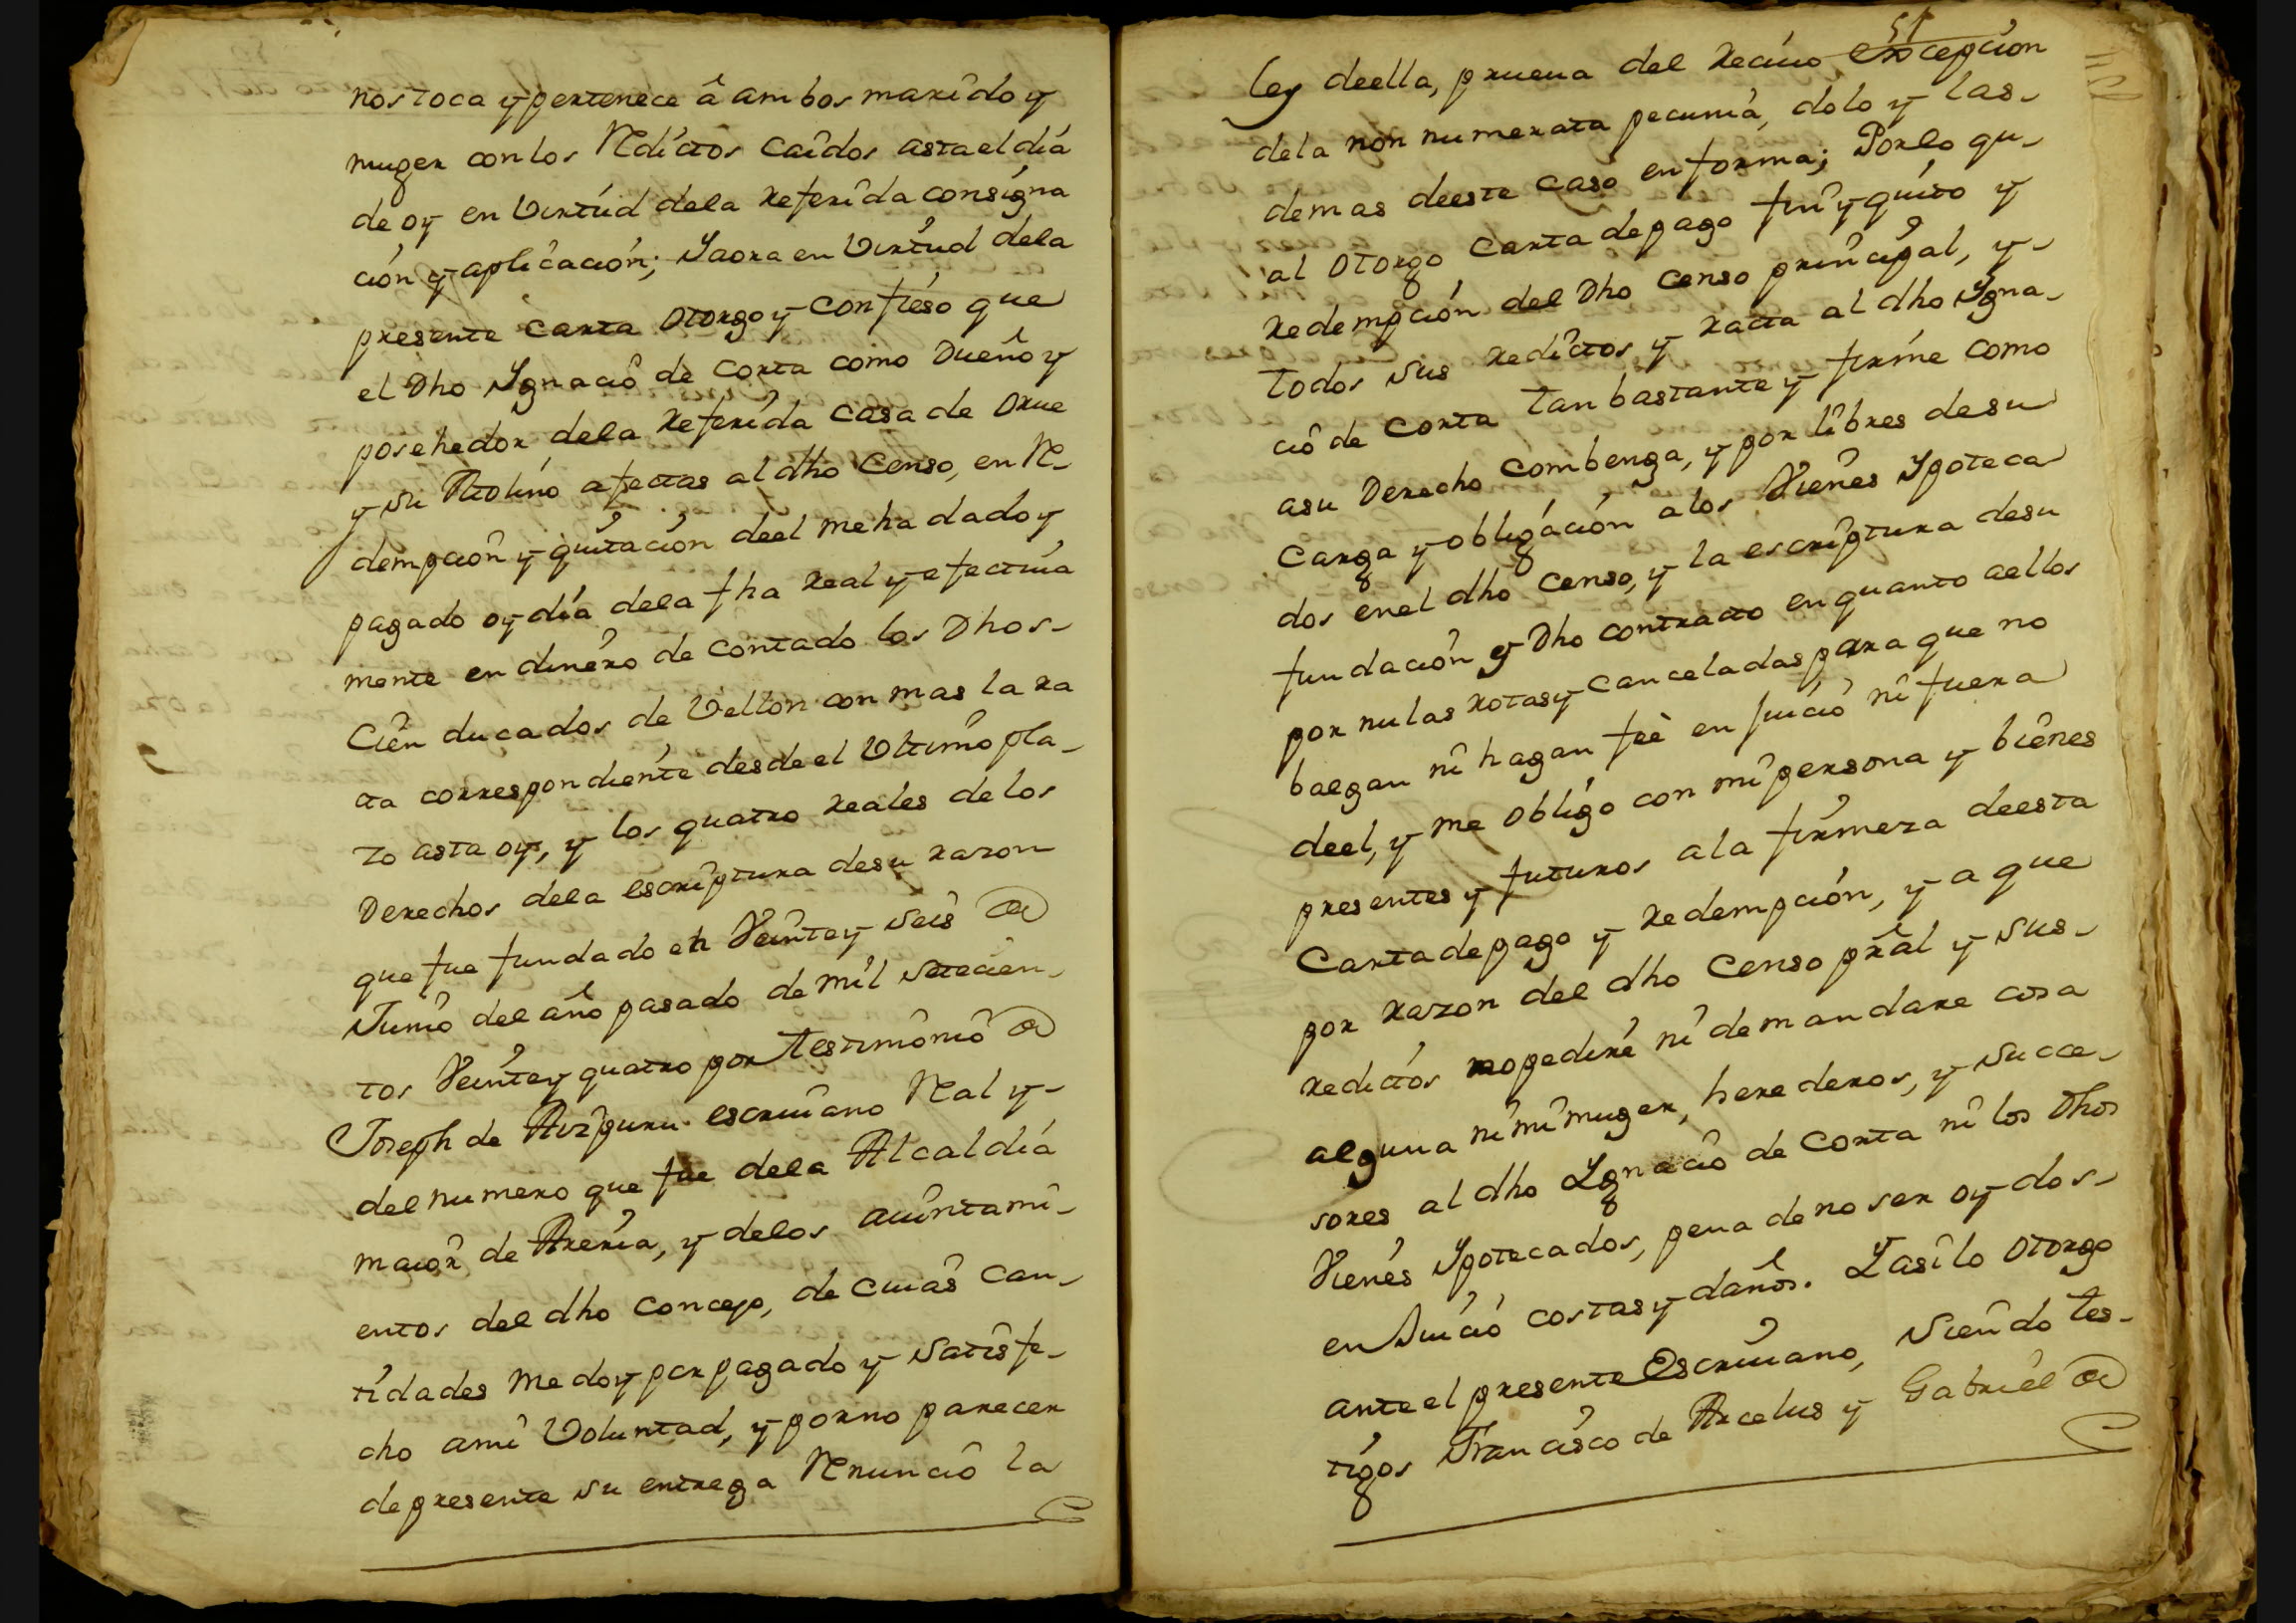 nos toca y pertenece â ambos marido y
muger con los Reditos caidos asta el dia
de oy en Virtud dela referida consigna
cion y aplicacion; Yaora en Virtud dela
presente carta otorgo y confieso que
el Dho Ygnacio de Corta como Dueño y
posehedor dela referida casa de Orue
y su Molino afectas al dho Censo, en Re-
dempcion y quitacion deel me ha dado y
pagado oy dia dela fha real y efectiua
mente en dinero de contado los Dhos-
Cien ducados de Vellon con mas la ra
ta correspondiente desde el Vltimo pla-
zo asta oy, y los quatro reales de los
Derechos dela escriptura desu razon
que fue fundado en Veinte y seis de
Junio del año pasado de mil setecien-
tos Veinte y quatro por testimonio de
Joseph de Aizpuru escriuano Real y-
del numero que fue dela Alcaldia
maior de Areria, y delos aiuntami-
entos del dho concejo, de cuias can-
tidades me doy por pagado y satisfe-
cho ami Voluntad, y porno parecer
de presente su entrega Renuncio la
51
ley deella, prueua del reciuo excepcion
dela non numerata pecunia, dolo y las-
demas deeste caso en forma; Porlo qu-
al otorgo carta de pago fin y quito y
redempcion del Dho censo principal, y-
todos sus reditos y rata al dho Ygna-
cio de Corta tan bastante y firme como
asu Derecho combenga, y por libres desu
carga y obligacion alos Vienes Ypoteca
dos enel dho censo, y la escriptura desu
fundacion y Dho contrato en quanto aellos
por nulas rotas y canceladas para que no
balgan ni hagan feè en juicio ni fuera
deel, y me obligo con mi persona y bienes
presentes y futuros ala firmeza deesta
Carta de pago y redempcion, y a que
por razon del dho Censo pral y sus-
reditos no pedire ni demandare cosa
alguna ni mi muger, herederos, y succe-
sores al dho Ygnacio de Corta ni los Dhos
Vienes Ypotecados, pena de no ser oydos-
en Juicio costas y daños. Yasilo otorgo
ante el presente Escriuano, siendo tes-
tigos Francisco de Arcelus y Gabriel de